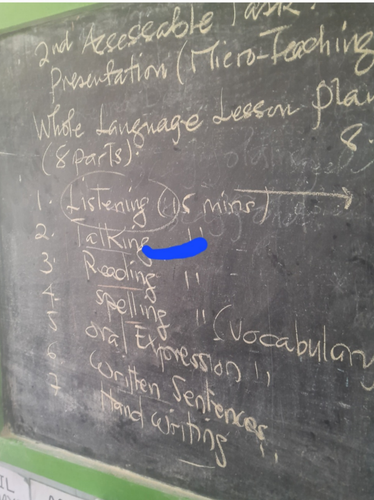 2nd Assessable Task:
Presentation (Micro-Teaching
Whole Language Lesson Plan
(8 parts). 8.
1. Listening (15 mins)
2. Talking "
3. Reading "
4. Spelling " (Vocabulary
5 Oral Expression "
6 Written Sentences
7 Hand Writing "